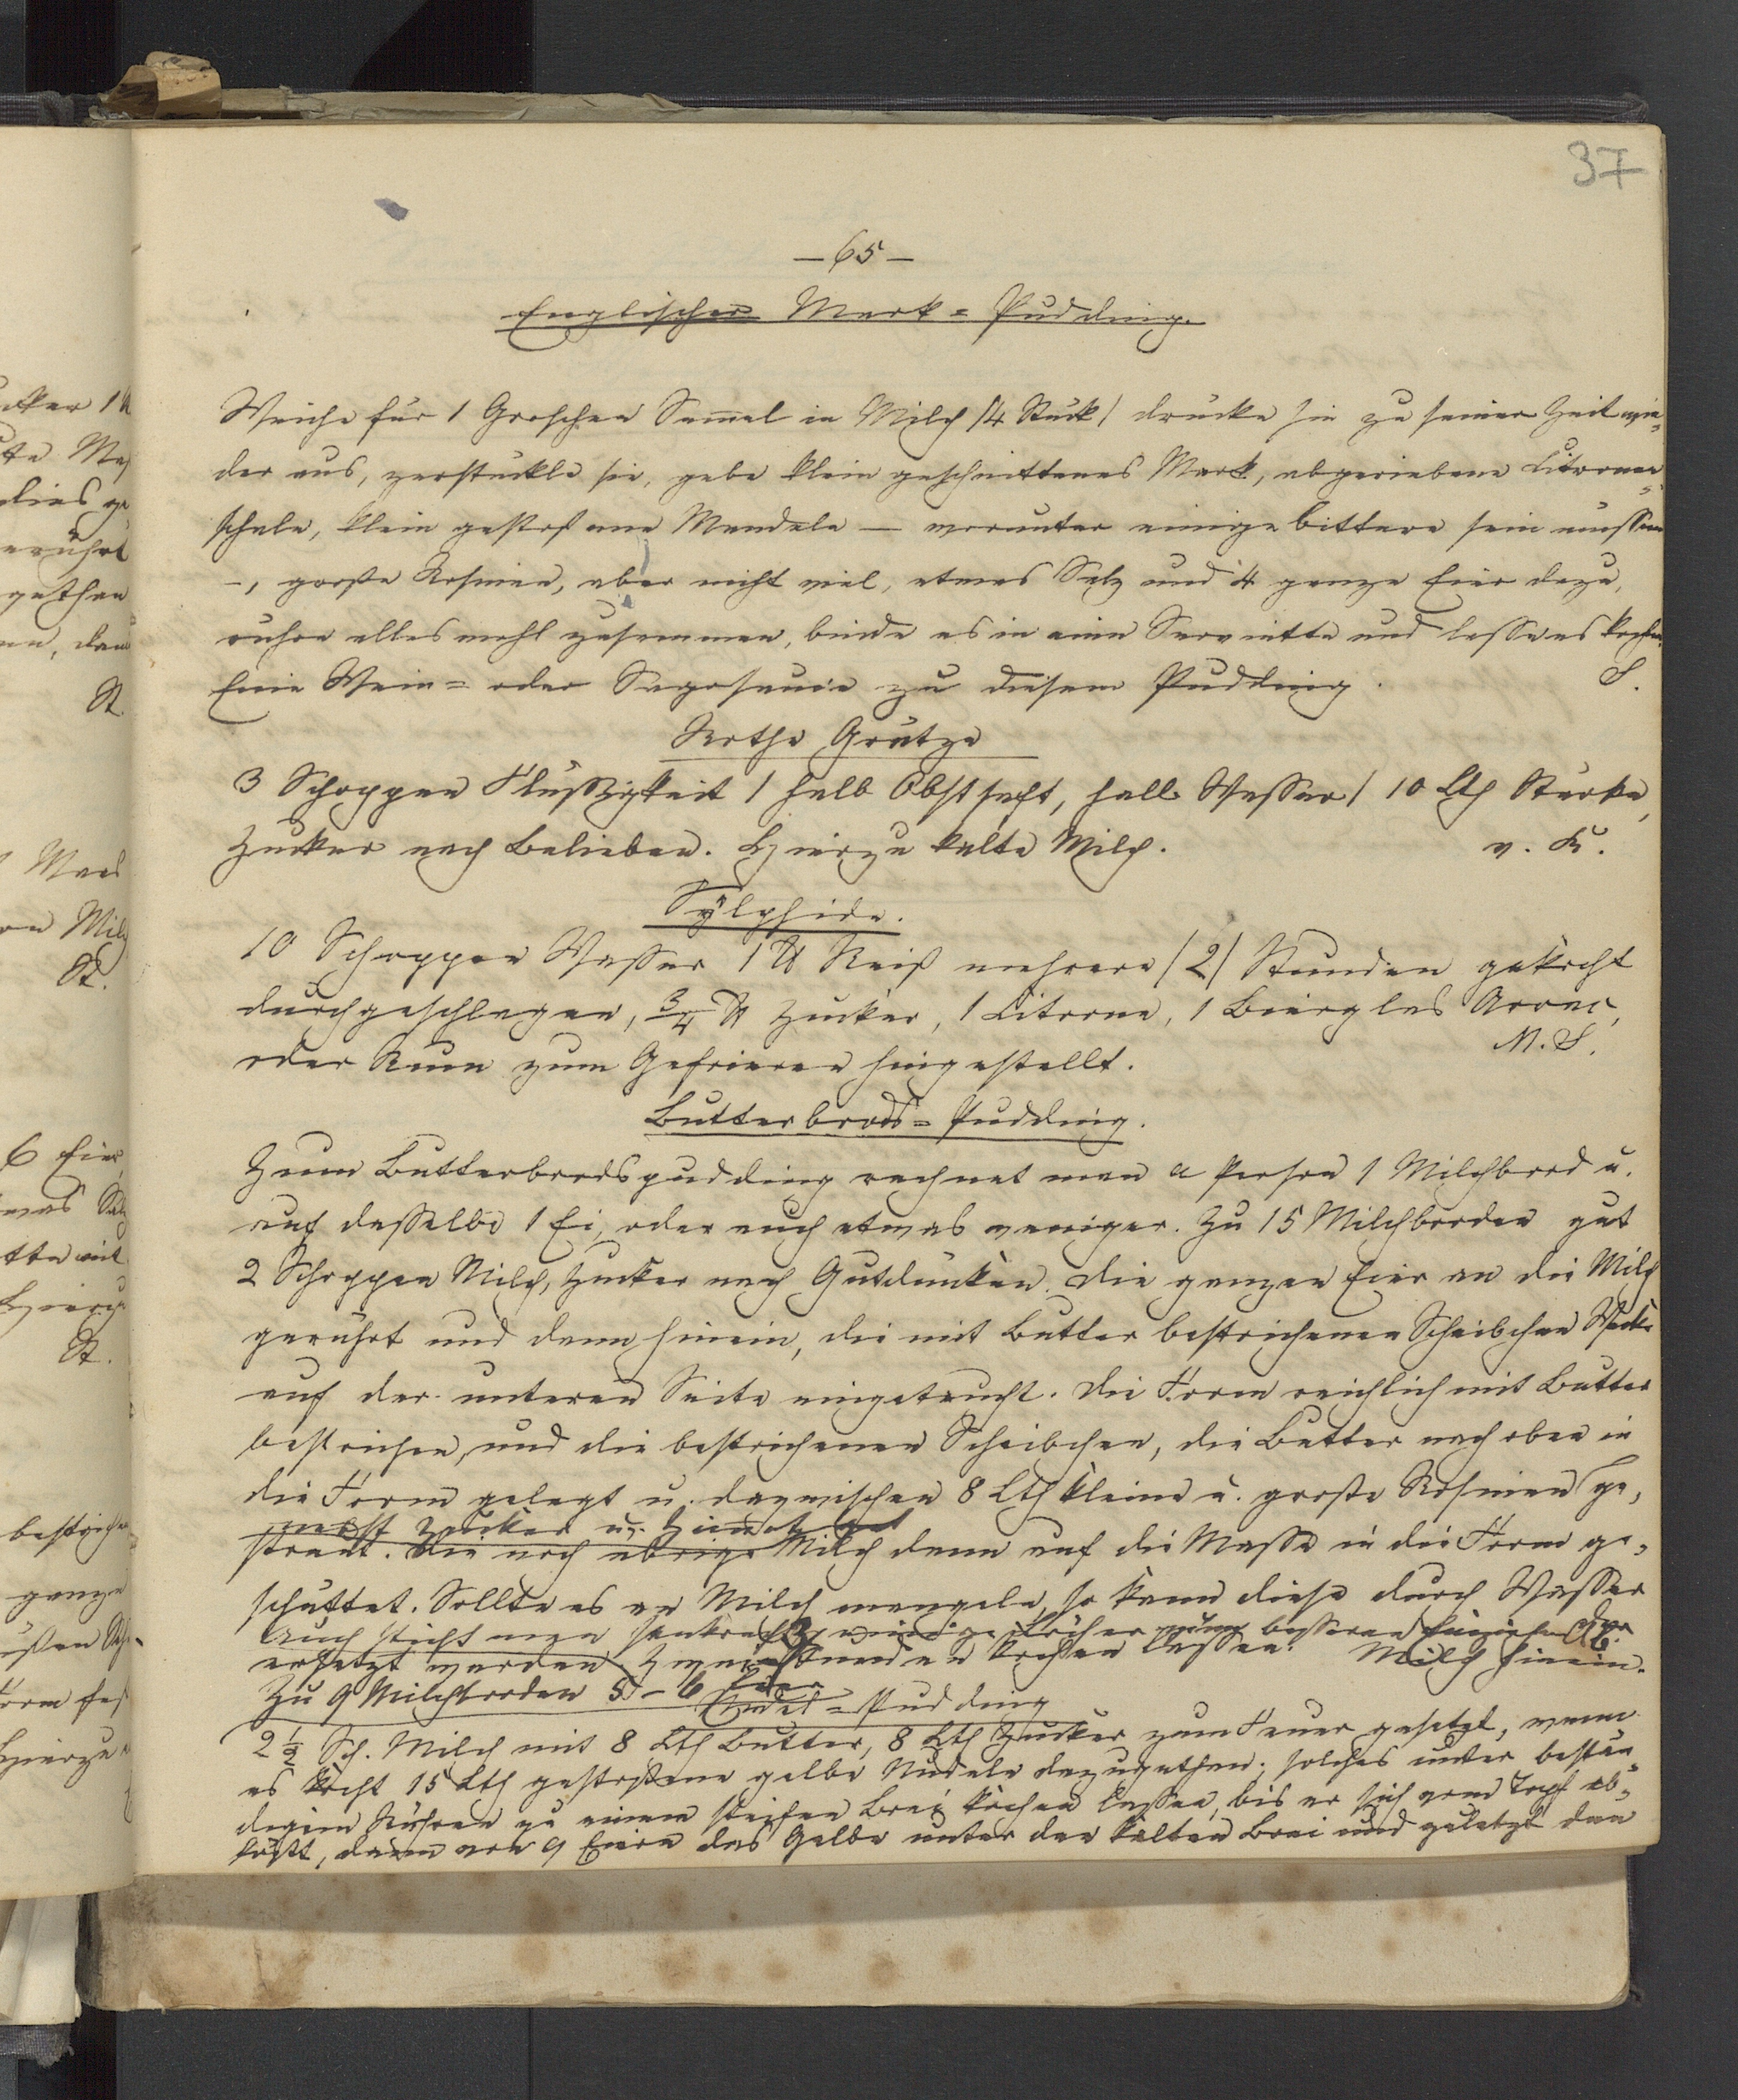 37
— 65 —
Englischer Mark = Pudding.
Weiche für 1 Groschen Semmel in Milch /4 Stück/ drücke sie zu seiner Zeit wie=
der aus, zerstückle sie, gebe klein geschnittenes Mark, abgeriebene Citronen=
schale, klein gestoßene Mandeln — worunter einige bittere sein müssen
–, große Rosinen, aber nicht viel, etwas Salz und 4 ganze Eier dazu,
rühre alles wohl zusammen, binde es in eine Serviette und lasse es kochen.
Eine Wein= oder Sagosauce zu diesem Pudding. S.
Rothe Grütze
3 Schoppen Flüßigkeit / halb Obstsaft, halb Wasser / 10 Lth Stärke,
Zucker nach Belieben. Hierzu kalte Milch. v. K.
Sylphide.
10 Schoppen Wasser 1 ℔ Reiß mehrere /2/ Stunden gekocht
durchgeschlagen, 3/4 ℔ Zucker, 1 Citrone, 1 Bierglas Arrac,
oder Rum zum Gefrieren hingestellt. M. S.
Butterbrods = Pudding.
Zum Butterbrodspudding rechnet man a Person 1 Milchbrod u.
auf dasselbe 1 Ei, oder auch etwas weniger. Zu 15 Milchbroden gut
2 Schoppen Milch, Zucker nach Gutdünken. Die ganzen Eier an die Milch
gerührt und dann hinein, die mit Butter bestrichenen Scheibchen Weck
auf der unteren Seite eingetaucht. Die Form reichlich mit Butter
bestrichen, und die bestrichenen Scheibchen, die Butter nach oben in
die Form gelegt u. dazwischen 8 Lth kleine u. große Rosinen ge=
nebst Zucker u. Zimmt
streut. Die noch übrige Milch dann auf die Masse in die Form ge=
schüttet. Sollte es an Milch mangeln, so kann diese durch Wasser
Auch sticht man senkrecht einige Löcher zum besseren Einziehen der
ersetzt werden. Zwei Stunden kochen lassen. Milch hinein.
Zu 9 Milchbroden 5–6 Eier
Nudel = Pudding
2 1/2 Sch. Milch mit 8 Lth Butter, 8 Lth Zucker zum Feuer gesetzt, wenn
es kocht 15 Lth gestoßene gelbe Nudeln dazugethan; solches unter bestän=
digem Rühren zu einem steifen Brei kochen lassen, bis er sich vom Topf ab=
löst, dann von 9 Eiern das Gelbe unter den kalten Brei und zuletzt den